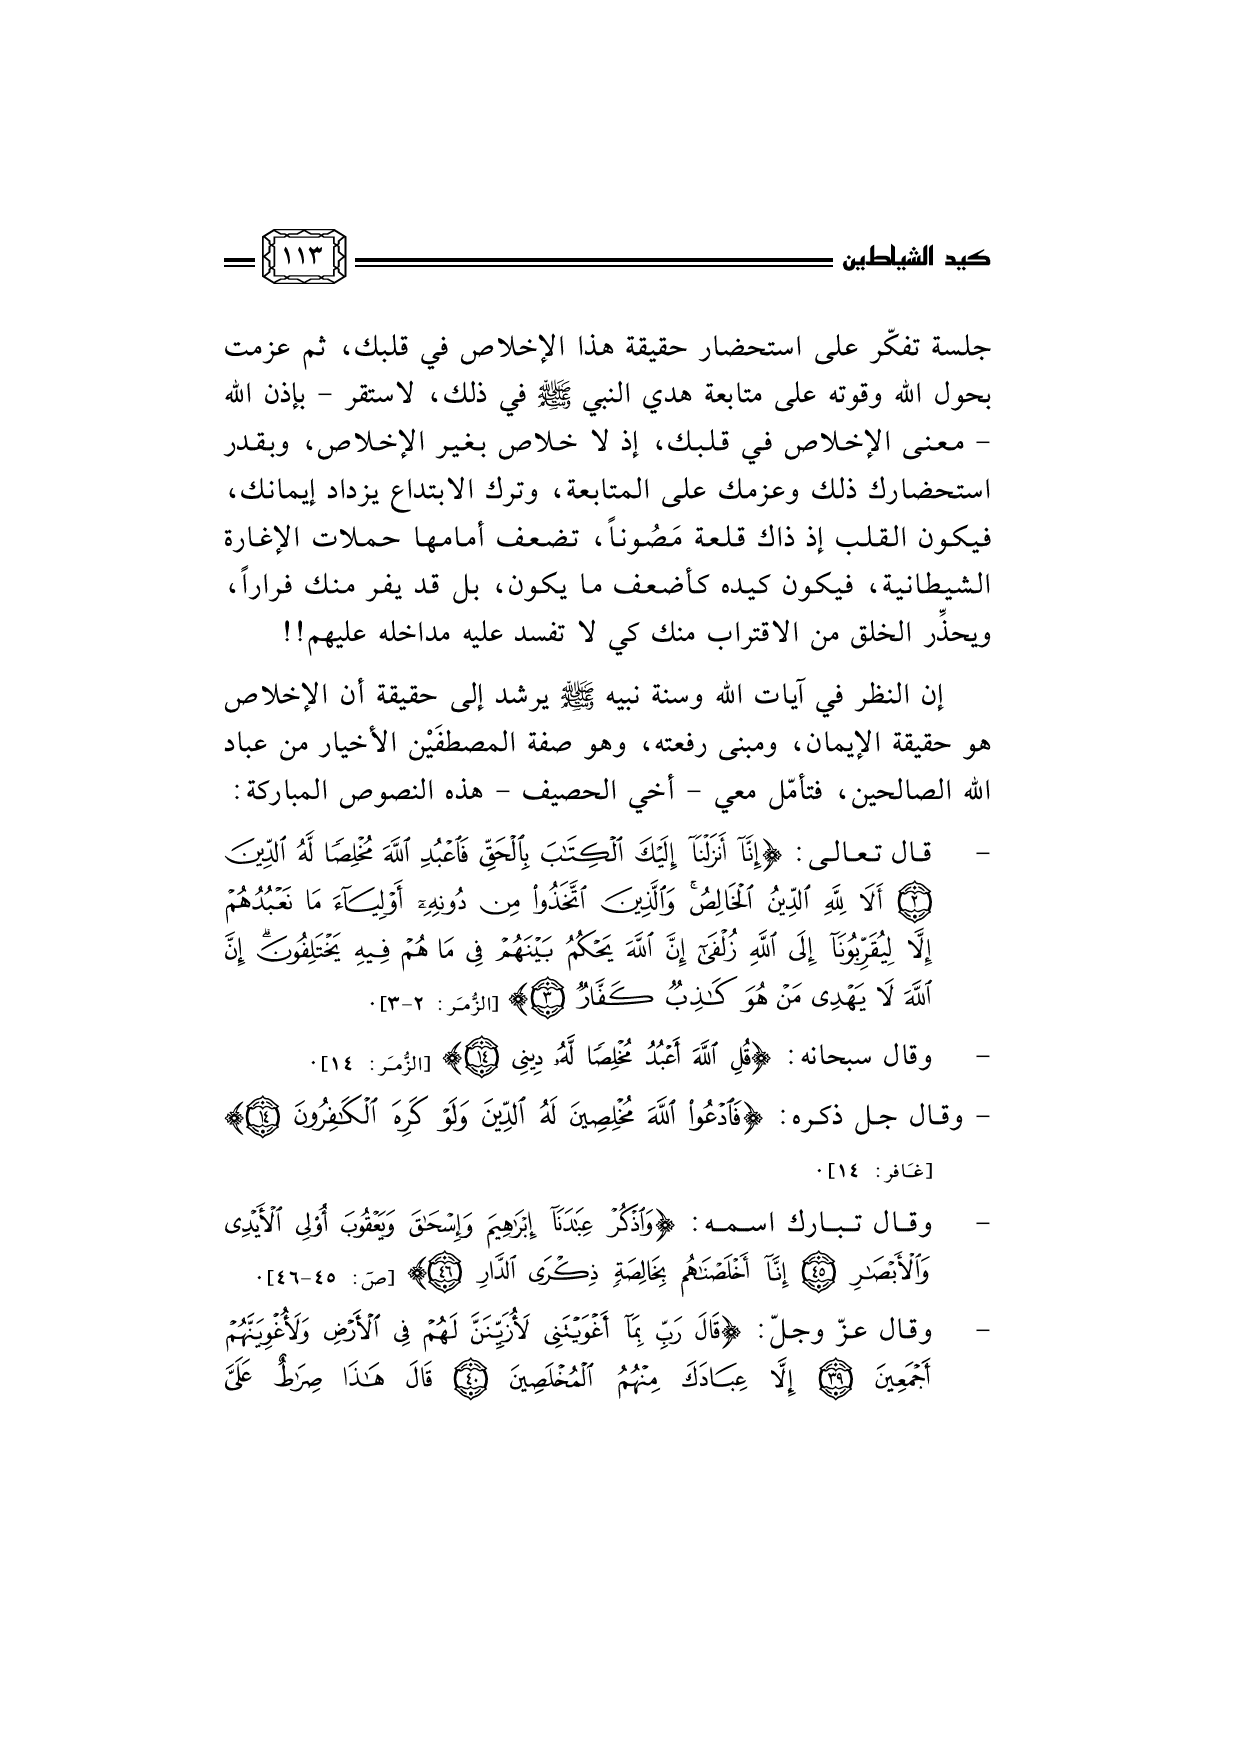 كيد الشياطين ١١٣
جلسة تفكّر على استحضار حقيقة هذا الإخلاص في قلبك، ثم عزمت
بحول الله وقوته على متابعة هدي النبي ﷺ في ذلك، لاستقر – بإذن الله
– معنى الإخلاص في قلبك، إذ لا خلاص بغير الإخلاص، وبقدر
استحضارك ذلك وعزمك على المتابعة، وترك الابتداع يزداد إيمانك،
فيكون القلب إذ ذاك قلعة مَصُوناً، تضعف أمامها حملات الإغارة
الشيطانية، فيكون كيده كأضعف ما يكون، بل قد يفر منك فراراً،
ويحذِّر الخلق من الاقتراب منك كي لا تفسد عليه مداخله عليهم!!
إن النظر في آيات الله وسنة نبيه ﷺ يرشد إلى حقيقة أن الإخلاص
هو حقيقة الإيمان، ومبنى رفعته، وهو صفة المصطفَيْن الأخيار من عباد
الله الصالحين، فتأمّل معي – أخي الحصيف – هذه النصوص المباركة:
– قال تعالى: ﴿إِنَّآ أَنزَلْنَآ إِلَيْكَ ٱلْكِتَٰبَ بِٱلْحَقِّ فَٱعْبُدِ ٱللَّهَ مُخْلِصًا لَّهُ ٱلدِّينَ
٢ أَلَا لِلَّهِ ٱلدِّينُ ٱلْخَالِصُ ۚ وَٱلَّذِينَ ٱتَّخَذُوا۟ مِن دُونِهِۦٓ أَوْلِيَآءَ مَا نَعْبُدُهُمْ
إِلَّا لِيُقَرِّبُونَآ إِلَى ٱللَّهِ زُلْفَىٰٓ إِنَّ ٱللَّهَ يَحْكُمُ بَيْنَهُمْ فِى مَا هُمْ فِيهِ يَخْتَلِفُونَ ۗ إِنَّ
ٱللَّهَ لَا يَهْدِى مَنْ هُوَ كَٰذِبٌ كَفَّارٌ ٣﴾ [الزُّمَر: ٢-٣].
– وقال سبحانه: ﴿قُلِ ٱللَّهَ أَعْبُدُ مُخْلِصًا لَّهُۥ دِينِى ١٤﴾ [الزُّمَر: ١٤].
– وقال جل ذكره: ﴿فَٱدْعُوا۟ ٱللَّهَ مُخْلِصِينَ لَهُ ٱلدِّينَ وَلَوْ كَرِهَ ٱلْكَٰفِرُونَ ١٤﴾
[غَافر: ١٤].
– وقال تبارك اسمه: ﴿وَٱذْكُرْ عِبَٰدَنَآ إِبْرَٰهِيمَ وَإِسْحَٰقَ وَيَعْقُوبَ أُو۟لِى ٱلْأَيْدِى
وَٱلْأَبْصَٰرِ ٤٥ إِنَّآ أَخْلَصْنَٰهُم بِخَالِصَةٍ ذِكْرَى ٱلدَّارِ ٤٦﴾ [صَ: ٤٥-٤٦].
– وقال عزّ وجلّ: ﴿قَالَ رَبِّ بِمَآ أَغْوَيْتَنِى لَأُزَيِّنَنَّ لَهُمْ فِى ٱلْأَرْضِ وَلَأُغْوِيَنَّهُمْ
أَجْمَعِينَ ٣٩ إِلَّا عِبَادَكَ مِنْهُمُ ٱلْمُخْلَصِينَ ٤٠ قَالَ هَٰذَا صِرَٰطٌ عَلَىَّ